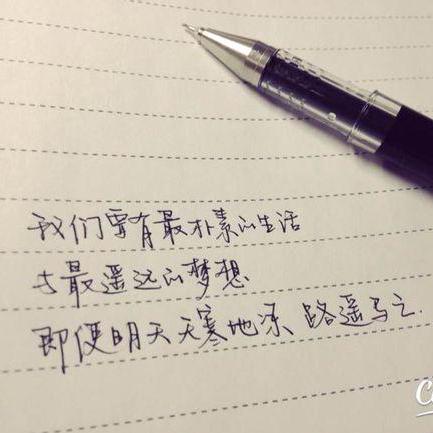 我们要有最朴素的生活
与最遥远的梦想
即使明天天寒地冻 路遥马亡.